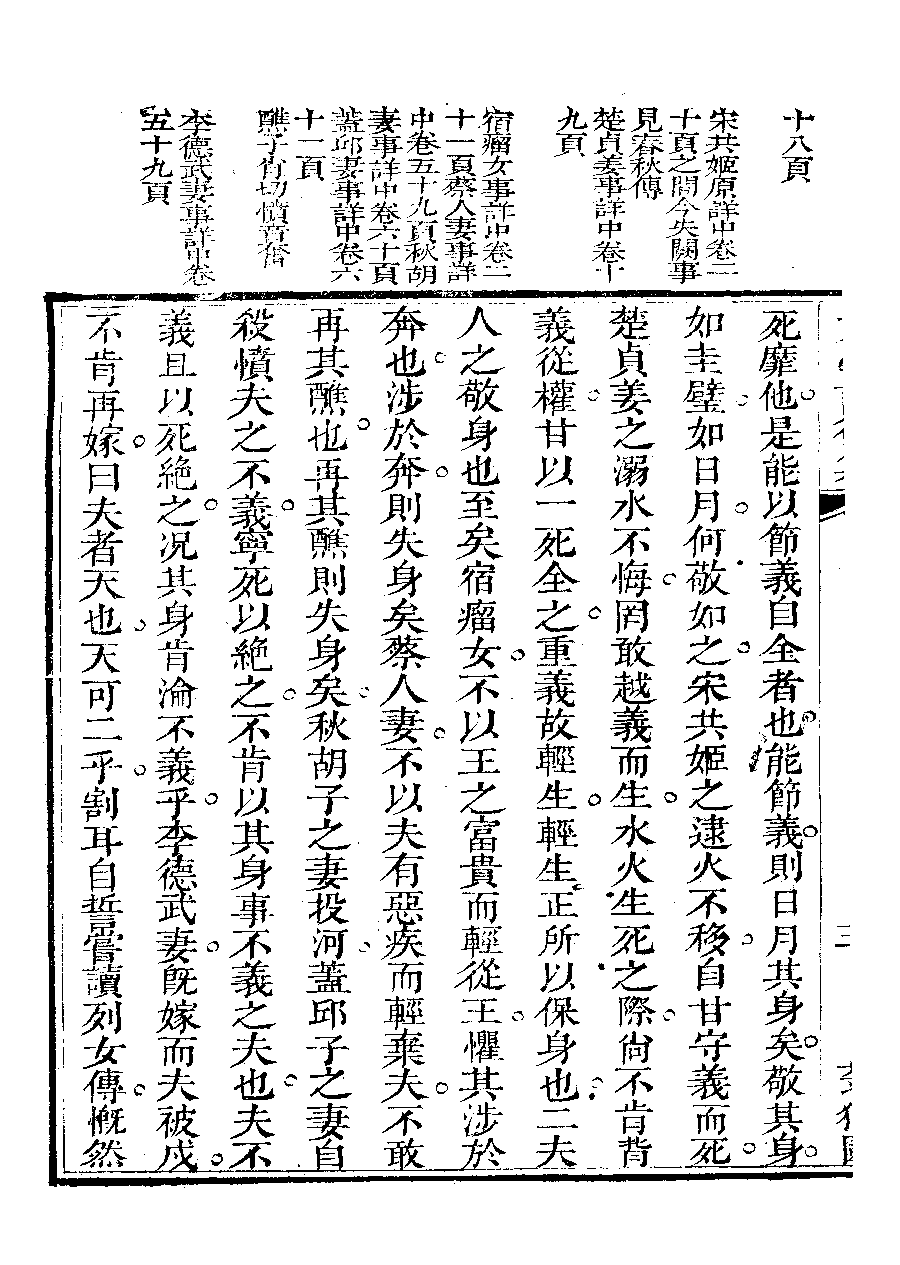 十八頁
宋共姬原詳中卷二
十頁之間今失闕事
見春秋傳
楚貞姜事詳中卷十
九頁
宿瘤女事詳中卷二
十一頁蔡人妻事詳
中卷五十九頁秋胡
妻事詳中卷六十頁
蓋邱妻事詳中卷六
十一頁
醮子肖切憤音奮
李德武妻事詳中卷
五十九頁
死靡他是能以節義自全者也能節義則日月其身矣敬其身
如圭璧如日月何敬如之宋共姬之逮火不移自甘守義而死
楚貞姜之溺水不悔罔敢越義而生水火生死之際尙不肯背
義從權甘以一死全之重義故輕生輕生正所以保身也二夫
人之敬身也至矣宿瘤女不以王之富貴而輕從王懼其涉於
奔也涉於奔則失身矣蔡人妻不以夫有惡疾而輕棄夫不敢
再其醮也再其醮則失身矣秋胡子之妻投河蓋邱子之妻自
殺憤夫之不義寧死以絕之不肯以其身事不義之夫也夫不
義且以死絕之况其身肯淪不義乎李德武妻旣嫁而夫被戍
不肯再嫁曰夫者天也天可二乎割耳自誓嘗讀列女傳慨然